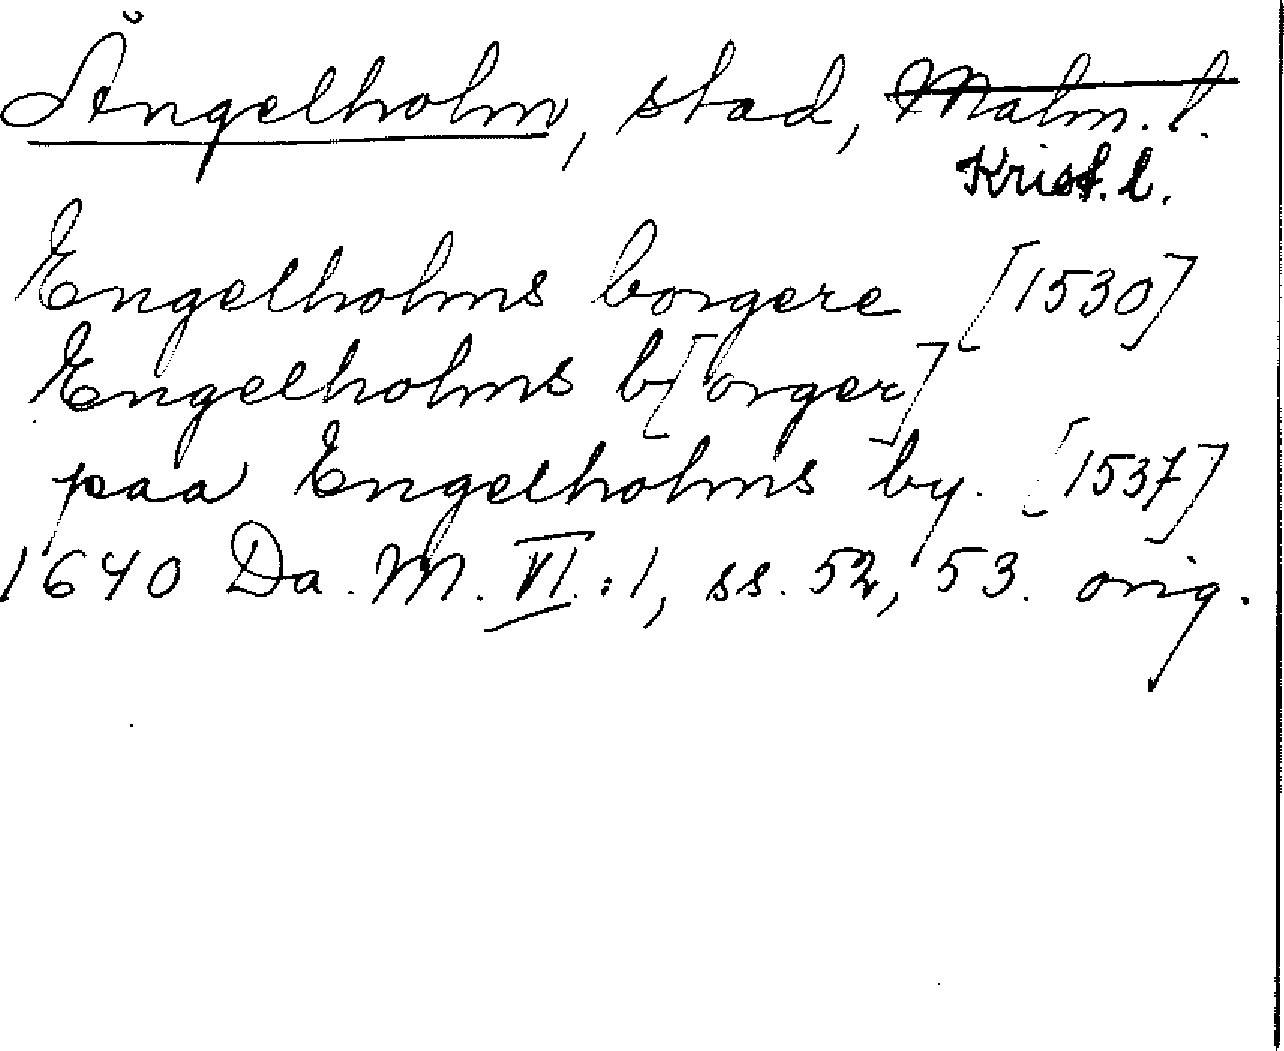 Ängelholm, stad, Malm. l.
Krist. l.
Engelholms borgere [1530]
Engelholms b[orger]
paa Engelholms by. [1537]
1640 Da. M. VI:1, ss. 52, 53. orig.